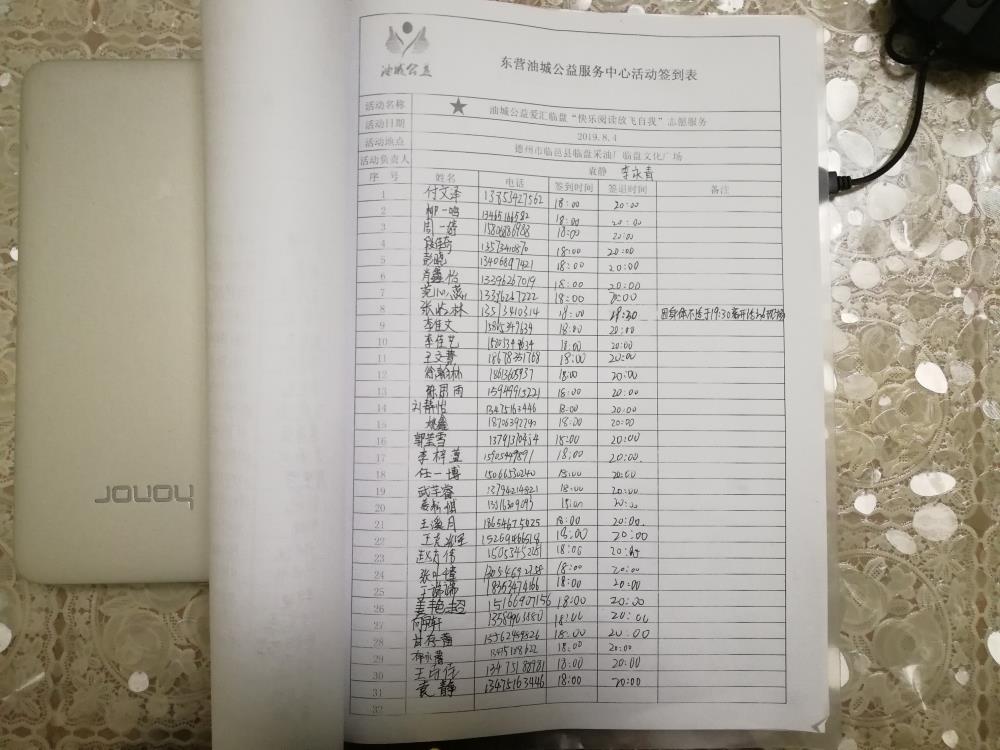 油城公益
东营油城公益服务中心活动签到表
活动名称 ★ 油城公益爱汇临盘“快乐阅读放飞自我”志愿服务
活动日期 2019.8.4
活动地点 德州市临邑县临盘采油厂临盘文化广场
活动负责人 袁静 李永青
序 号 姓名 电话 签到时间 签退时间 备注
1 付文泽 13853427562 18:00 20:00
2 柳一鸣 13465164582 18:00 20:00
3 周一婷 15806886988 18:00 20:00
4 13573410870 18:00 20:00
5 彭晓 13406897421 18:00 20:00
6 肖鑫怡 13396267019 18:00 20:00
7 范心蕊 13396267222 18:00 20:00
8 张 林 13573410314 18:00 19:30 因身体不适于19:30离开
9 李佳文 15865349634 18:00 20:00
10 李佳艺 18:00 20:00
11 王文慧 18678351768 18:00 20:00
12 徐翰林 18613605937 18:00 20:00
13 雨 15949915221 18:00 20:00
14 刘静怡 13475163446 18:00 20:00
15 姚鑫 18706392790 18:00 20:00
16 郭莹雪 18:00 20:00
17 李梓萱 15905449891 18:00 20:00
18 任一博 15066530240 18:00 20:00
19 武芊睿 13794214921 18:00 20:00
20 18:00 20:00
21 王溪月 18654675025 18:00 20:00
22 王 18:00 20:00
23 赵方伟 18:00 20:00
24 张叶倩 18:00 20:00
25 18353474166 18:00 20:00
26 姜艳超 15166907156 18:00 20:00
27 18:00 20:00
28 18:00 20:00
29 18:00 20:00
30 王 13475188981 18:00 20:00
31 袁静 13475163446 18:00 20:00
32
honor